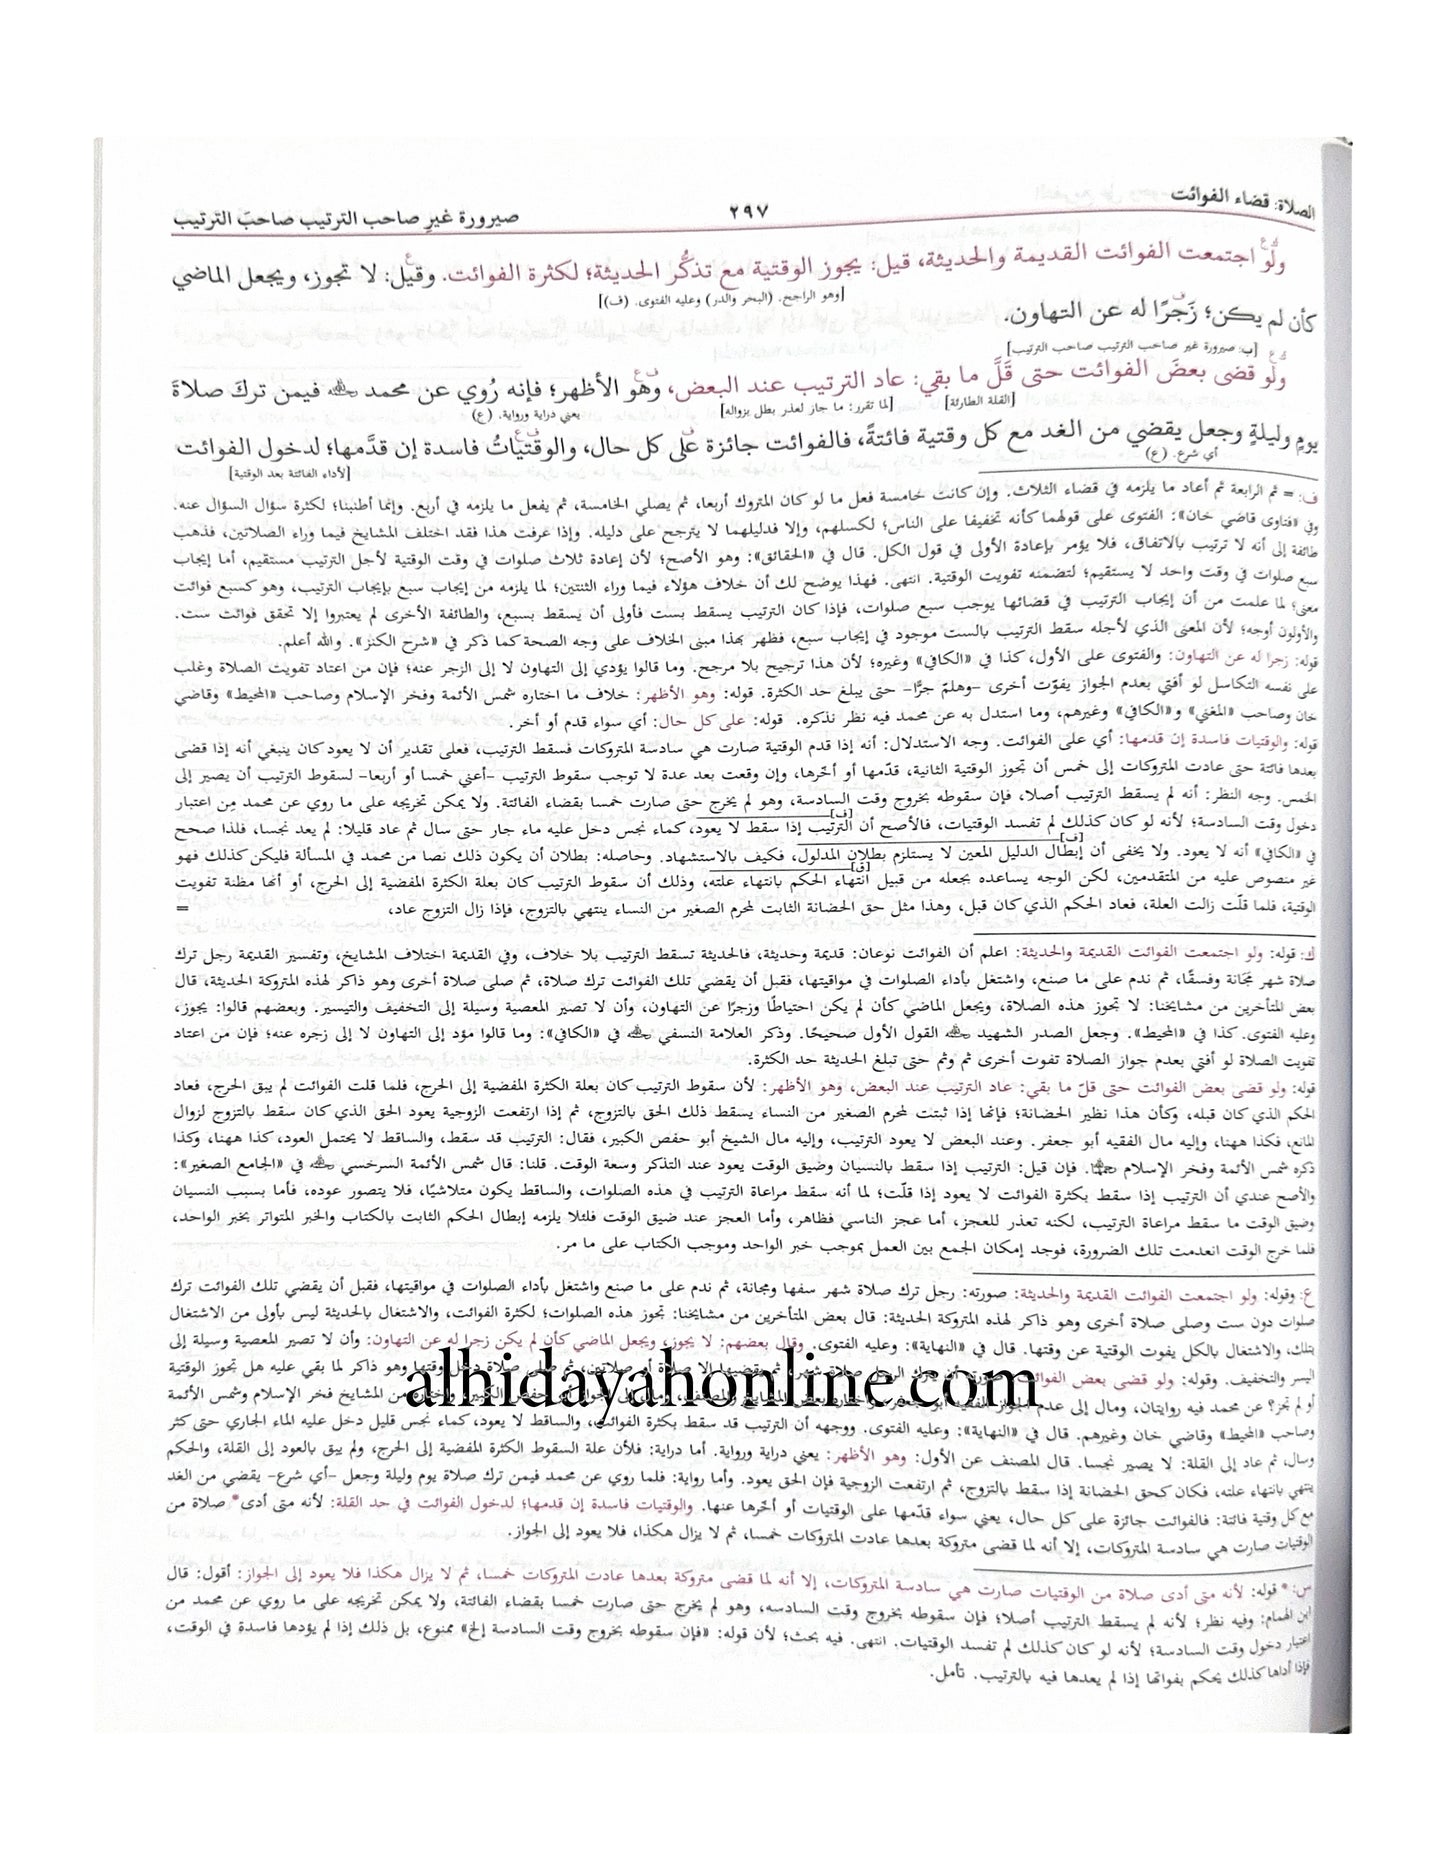 الصلاة: قضاء الفوائت
٢٩٧
صيرورة غيرِ صاحب الترتيب صاحبَ الترتيب
ولو اجتمعت الفوائت القديمة والحديثة، قيل: يجوز الوقتية مع تذكُّر الحديثة؛ لكثرة الفوائت. وقيل: لا تجوز، ويجعل الماضي
[وهو الراجح. (البحر والدر) وعليه الفتوى. (ف)]
كأن لم يكن؛ زَجرًا له عن التهاون.
[ب: صيرورة غير صاحب الترتيب صاحب الترتيب]
ولو قضى بعضَ الفوائت حتى قَلَّ ما بقي: عاد الترتيب عند البعض، وهو الأظهر؛ فإنه رُوي عن محمد فيمن تركَ صلاةَ
[القلة الطارئة]
[لما تقرر: ما جاز لعذر بطل بزواله]
يعني دراية ورواية. (ع)
يومٍ وليلةٍ وجعل يقضي من الغد مع كل وقتية فائتةً، فالفوائت جائزة على كل حال، والوقتياتُ فاسدة إن قدَّمها؛ لدخول الفوائت
أي شرع. (ع)
[لأداء الفائتة بعد الوقتية]
ف: = ثم الرابعة ثم أعاد ما يلزمه في قضاء الثلاث. وإن كانت خامسة فعل ما لو كان المتروك أربعا، ثم يصلي الخامسة، ثم يفعل ما يلزمه في أربع. وإنما أطنبنا؛ لكثرة سؤال السؤال عنه.
وفي «فتاوى قاضي خان»: الفتوى على قولهما كأنه تخفيفا على الناس؛ لكسلهم، وإلا فدليلهما لا يترجح على دليله. وإذا عرفت هذا فقد اختلف المشايخ فيما وراء الصلاتين، فذهب
طائفة إلى أنه لا ترتيب بالاتفاق، فلا يؤمر بإعادة الأولى في قول الكل. قال في «الحقائق»: وهو الأصح؛ لأن إعادة ثلاث صلوات في وقت الوقتية لأجل الترتيب مستقيم، أما إيجاب
سبع صلوات في وقت واحد لا يستقيم؛ لتضمنه تفويت الوقتية. انتهى. فهذا يوضح لك أن خلاف هؤلاء فيما وراء الثنتين؛ لما يلزمه من إيجاب سبع بإيجاب الترتيب، وهو كسبع فوائت
معنى؛ لما علمت من أن إيجاب الترتيب في قضائها يوجب سبع صلوات، فإذا كان الترتيب يسقط بست فأولى أن يسقط بسبع، والطائفة الأخرى لم يعتبروا إلا تحقق فوائت ست.
والأولون أوجه؛ لأن المعنى الذي لأجله سقط الترتيب بالست موجود في إيجاب سبع، فظهر بهذا مبنى الخلاف على وجه الصحة كما ذكر في «شرح الكنز». والله أعلم.
قوله: زجرا له عن التهاون: والفتوى على الأول، كذا في «الكافي» وغيره؛ لأن هذا ترجيح بلا مرجح. وما قالوا يؤدي إلى التهاون لا إلى الزجر عنه؛ فإن من اعتاد تفويت الصلاة وغلب
على نفسه التكاسل لو أفتي بعدم الجواز يفوّت أخرى -وهلمّ جرًّا- حتى يبلغ حد الكثرة. قوله: وهو الأظهر: خلاف ما اختاره شمس الأئمة وفخر الإسلام وصاحب «المحيط» وقاضي
خان وصاحب «المغني» و«الكافي» وغيرهم، وما استدل به عن محمد فيه نظر نذكره. قوله: على كل حال: أي سواء قدم أو أخر.
قوله: والوقتيات فاسدة إن قدمها: أي على الفوائت. وجه الاستدلال: أنه إذا قدم الوقتية صارت هي سادسة المتروكات فسقط الترتيب، فعلى تقدير أن لا يعود كان ينبغي أنه إذا قضى
بعدها فائتة حتى عادت المتروكات إلى خمس أن تجوز الوقتية الثانية، قدّمها أو أخّرها، وإن وقعت بعد عدة لا توجب سقوط الترتيب -أعني خمسا أو أربعا- لسقوط الترتيب أن يصير إلى
الخمس. وجه النظر: أنه لم يسقط الترتيب أصلا، فإن سقوطه بخروج وقت السادسة، وهو لم يخرج حتى صارت خمسا بقضاء الفائتة. ولا يمكن تخريجه على ما روي عن محمد مِن اعتبار
دخول وقت السادسة؛ لأنه لو كان كذلك لم تفسد الوقتيات، فالأصح أن الترتيب إذا سقط لا يعود، كماء نجس دخل عليه ماء جار حتى سال ثم عاد قليلا: لم يعد نجسا، فلذا صحح
[ف]
في «الكافي» أنه لا يعود. ولا يخفى أن إبطال الدليل المعين لا يستلزم بطلان المدلول، فكيف بالاستشهاد. وحاصله: بطلان أن يكون ذلك نصا من محمد في المسألة فليكن كذلك فهو
[ف]
غير منصوص عليه من المتقدمين، لكن الوجه يساعده بجعله من قبيل انتهاء الحكم بانتهاء علته، وذلك أن سقوط الترتيب كان بعلة الكثرة المفضية إلى الحرج، أو أنها مظنة تفويت
الوقتية، فلما قلّت زالت العلة، فعاد الحكم الذي كان قبل، وهذا مثل حق الحضانة الثابت لمحرم الصغير من النساء ينتهي بالتزوج، فإذا زال التزوج عاد، =
ك: قوله: ولو اجتمعت الفوائت القديمة والحديثة: اعلم أن الفوائت نوعان: قديمة وحديثة، فالحديثة تسقط الترتيب بلا خلاف، وفي القديمة اختلاف المشايخ، وتفسير القديمة رجل ترك
صلاة شهر مجّانة وفسقًا، ثم ندم على ما صنع، واشتغل بأداء الصلوات في مواقيتها، فقبل أن يقضي تلك الفوائت ترك صلاة، ثم صلى صلاة أخرى وهو ذاكر لهذه المتروكة الحديثة، قال
بعض المتأخرين من مشايخنا: لا تجوز هذه الصلاة، ويجعل الماضي كأن لم يكن احتياطًا وزجرًا عن التهاون، وأن لا تصير المعصية وسيلة إلى التخفيف والتيسير. وبعضهم قالوا: يجوز،
وعليه الفتوى. كذا في «المحيط». وجعل الصدر الشهيد القول الأول صحيحًا. وذكر العلامة النسفي في «الكافي»: وما قالوا مؤد إلى التهاون لا إلى زجره عنه؛ فإن من اعتاد
تفويت الصلاة لو أفتي بعدم جواز الصلاة تفوت أخرى ثم وثم حتى تبلغ الحديثة حد الكثرة.
قوله: ولو قضى بعض الفوائت حتى قلّ ما بقي: عاد الترتيب عند البعض، وهو الأظهر: لأن سقوط الترتيب كان بعلة الكثرة المفضية إلى الحرج، فلما قلت الفوائت لم يبق الحرج، فعاد
الحكم الذي كان قبله، وكأن هذا نظير الحضانة؛ فإنها إذا ثبتت لمحرم الصغير من النساء يسقط ذلك الحق بالتزوج، ثم إذا ارتفعت الزوجية يعود الحق الذي كان سقط بالتزوج لزوال
المانع، فكذا ههنا، وإليه مال الفقيه أبو جعفر. وعند البعض لا يعود الترتيب، وإليه مال الشيخ أبو حفص الكبير، فقال: الترتيب قد سقط، والساقط لا يحتمل العود، كذا ههنا، وكذا
ذكره شمس الأئمة وفخر الإسلام. فإن قيل: الترتيب إذا سقط بالنسيان وضيق الوقت يعود عند التذكر وسعة الوقت. قلنا: قال شمس الأئمة السرخسي في «الجامع الصغير»:
والأصح عندي أن الترتيب إذا سقط بكثرة الفوائت لا يعود إذا قلّت؛ لما أنه سقط مراعاة الترتيب في هذه الصلوات، والساقط يكون متلاشيًا، فلا يتصور عوده، فأما بسبب النسيان
وضيق الوقت ما سقط مراعاة الترتيب، لكنه تعذر للعجز، أما عجز الناسي فظاهر، وأما العجز عند ضيق الوقت فلئلا يلزمه إبطال الحكم الثابت بالكتاب والخبر المتواتر بخبر الواحد،
فلما خرج الوقت انعدمت تلك الضرورة، فوجد إمكان الجمع بين العمل بموجب خبر الواحد وموجب الكتاب على ما مر.
ع: وقوله: ولو اجتمعت الفوائت القديمة والحديثة: صورته: رجل ترك صلاة شهر سفها ومجانة، ثم ندم على ما صنع واشتغل بأداء الصلوات في مواقيتها، فقبل أن يقضي تلك الفوائت ترك
صلوات دون ست وصلى صلاة أخرى وهو ذاكر لهذه المتروكة الحديثة: قال بعض المتأخرين من مشايخنا: تجوز هذه الصلوات؛ لكثرة الفوائت، والاشتغال بالحديثة ليس بأولى من الاشتغال
بتلك، والاشتغال بالكل يفوت الوقتية عن وقتها. قال في «النهاية»: وعليه الفتوى. وقال بعضهم: لا يجوز، ويجعل الماضي كأن لم يكن زجرا له عن التهاون: وأن لا تصير المعصية وسيلة إلى
اليسر والتخفيف. وقوله: ولو قضى بعض الفوائت: صورته أن يترك الرجل صلاة شهر، ثم يقضيها إلا صلاة أو صلاتين، ثم صلى صلاة دخل وقتها وهو ذاكر لما بقي عليه هل تجوز الوقتية
alhidayahonline.com
أو لم تجز؟ عن محمد فيه روايتان، ومال إلى عدم الجواز الفقيه أبو جعفر، واختاره بعض المشايخ والمصنف، ومال إلى الجواز أبو حفص الكبير، واختاره من المشايخ فخر الإسلام وشمس الأئمة
وصاحب «المحيط» وقاضي خان وغيرهم. قال في «النهاية»: وعليه الفتوى. ووجهه أن الترتيب قد سقط بكثرة الفوائت، والساقط لا يعود، كماء نجس قليل دخل عليه الماء الجاري حتى كثر
وسال، ثم عاد إلى القلة: لا يصير نجسا. قال المصنف عن الأول: وهو الأظهر: يعني دراية ورواية. أما دراية: فلأن علة السقوط الكثرة المفضية إلى الحرج، ولم يبق بالعود إلى القلة، والحكم
ينتهي بانتهاء علته، فكان كحق الحضانة إذا سقط بالتزوج، ثم ارتفعت الزوجية فإن الحق يعود. وأما رواية: فلما روي عن محمد فيمن ترك صلاة يوم وليلة وجعل -أي شرع- يقضي من الغد
مع كل وقتية فائتة: فالفوائت جائزة على كل حال، يعني سواء قدّمها على الوقتيات أو أخّرها عنها. والوقتيات فاسدة إن قدمها؛ لدخول الفوائت في حد القلة: لأنه متى أدى* صلاة من
الوقتيات صارت هي سادسة المتروكات، إلا أنه لما قضى متروكة بعدها عادت المتروكات خمسا، ثم لا يزال هكذا، فلا يعود إلى الجواز.
س: * قوله: لأنه متى أدى صلاة من الوقتيات صارت هي سادسة المتروكات، إلا أنه لما قضى متروكة بعدها عادت المتروكات خمسا، ثم لا يزال هكذا فلا يعود إلى الجواز: أقول: قال
ابن الهمام: وفيه نظر؛ لأنه لم يسقط الترتيب أصلا؛ فإن سقوطه بخروج وقت السادسه، وهو لم يخرج حتى صارت خمسا بقضاء الفائتة، ولا يمكن تخريجه على ما روي عن محمد من
اعتبار دخول وقت السادسة؛ لأنه لو كان كذلك لم تفسد الوقتيات. انتهى. فيه بحث؛ لأن قوله: «فإن سقوطه بخروج وقت السادسة إلخ» ممنوع، بل ذلك إذا لم يؤدها فاسدة في الوقت،
فإذا أداها كذلك يحكم بفواتها إذا لم يعدها فيه بالترتيب. تأمل.